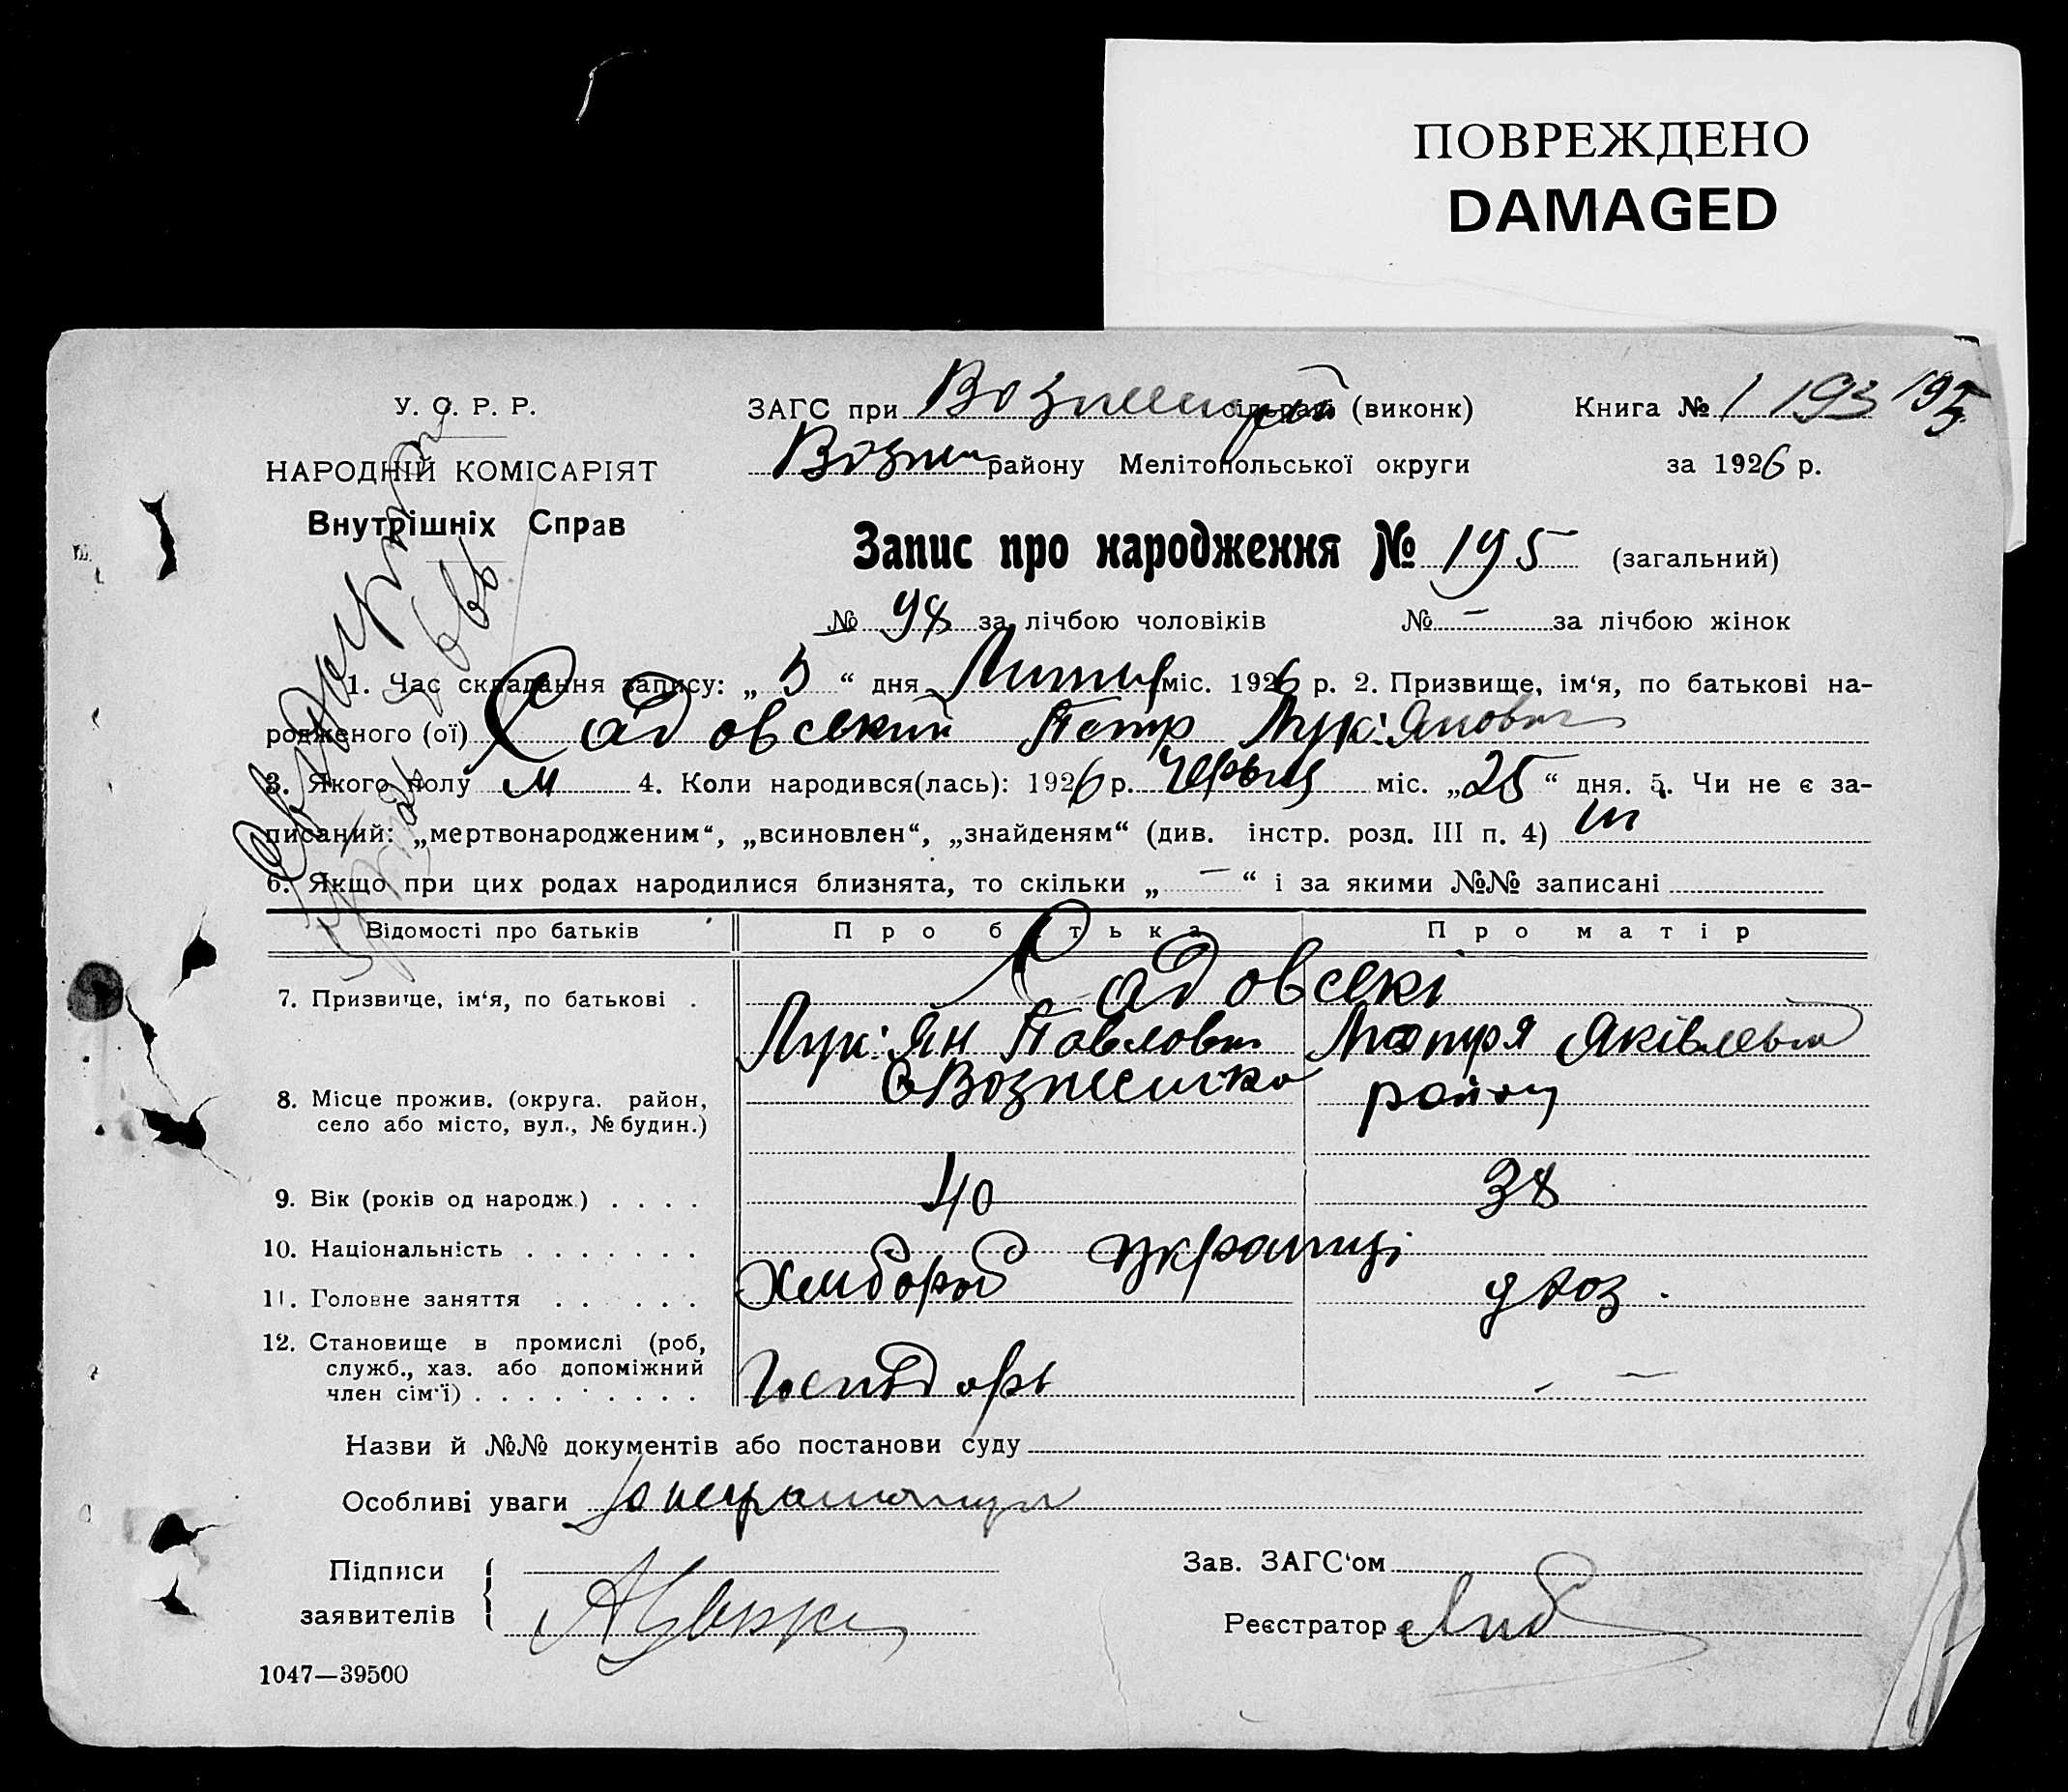 ПОВРЕЖДЕНО
DAMAGED
У. С. Р. Р.
НАРОДНІЙ КОМІСАРІЯТ
Внутрішніх Справ
ЗАГС при сільраді (виконк)
Возне району Мелітопольської округи
Книга № 1 193 195
за 1926 р.
Запис про народження № 195 (загальний)
№ 98 за лічбою чоловіків № – за лічбою жінок
1. Час складання запису: „ 5 “ дня Липня міс. 1926 р. 2. Призвище, ім'я, по батькові на-
родженого (ої) Садовський Петр Лук'янович
3. Якого полу М 4. Коли народився(лась): 1926 р. Червня міс. „ 25 “ дня. 5. Чи не є за-
писаний: „мертвонародженим“, „всиновлен“, „знайденям“ (див. інстр. розд. III п. 4)
6. Якщо при цих родах народилися близнята, то скільки „ – “ і за якими №№ записані
Відомості про батьків Про батька Про матір
Садовскі
7. Призвище, ім‘я, по батькові .
Лук'ян Павлович Мотря Яківлевна
8. Місце прожив. (округа. район, село або місто, вул., № будин.)
с Вознесенка району
9. Вік (років од народж.) . . . . 40 38
10. Національність . . . . . . . Українці
11. Головне заняття . . . . . . Хлибороб д хоз.
12. Становище в промислі (роб,
служб., хаз. або допоміжний
член сім'ї) . . . . . . . . . – –
Назви й №№ документів або постанови суду
Особливі уваги
Підписи
заявителів
Зав. ЗАГС‘ом
Реєстратор
1047—39500